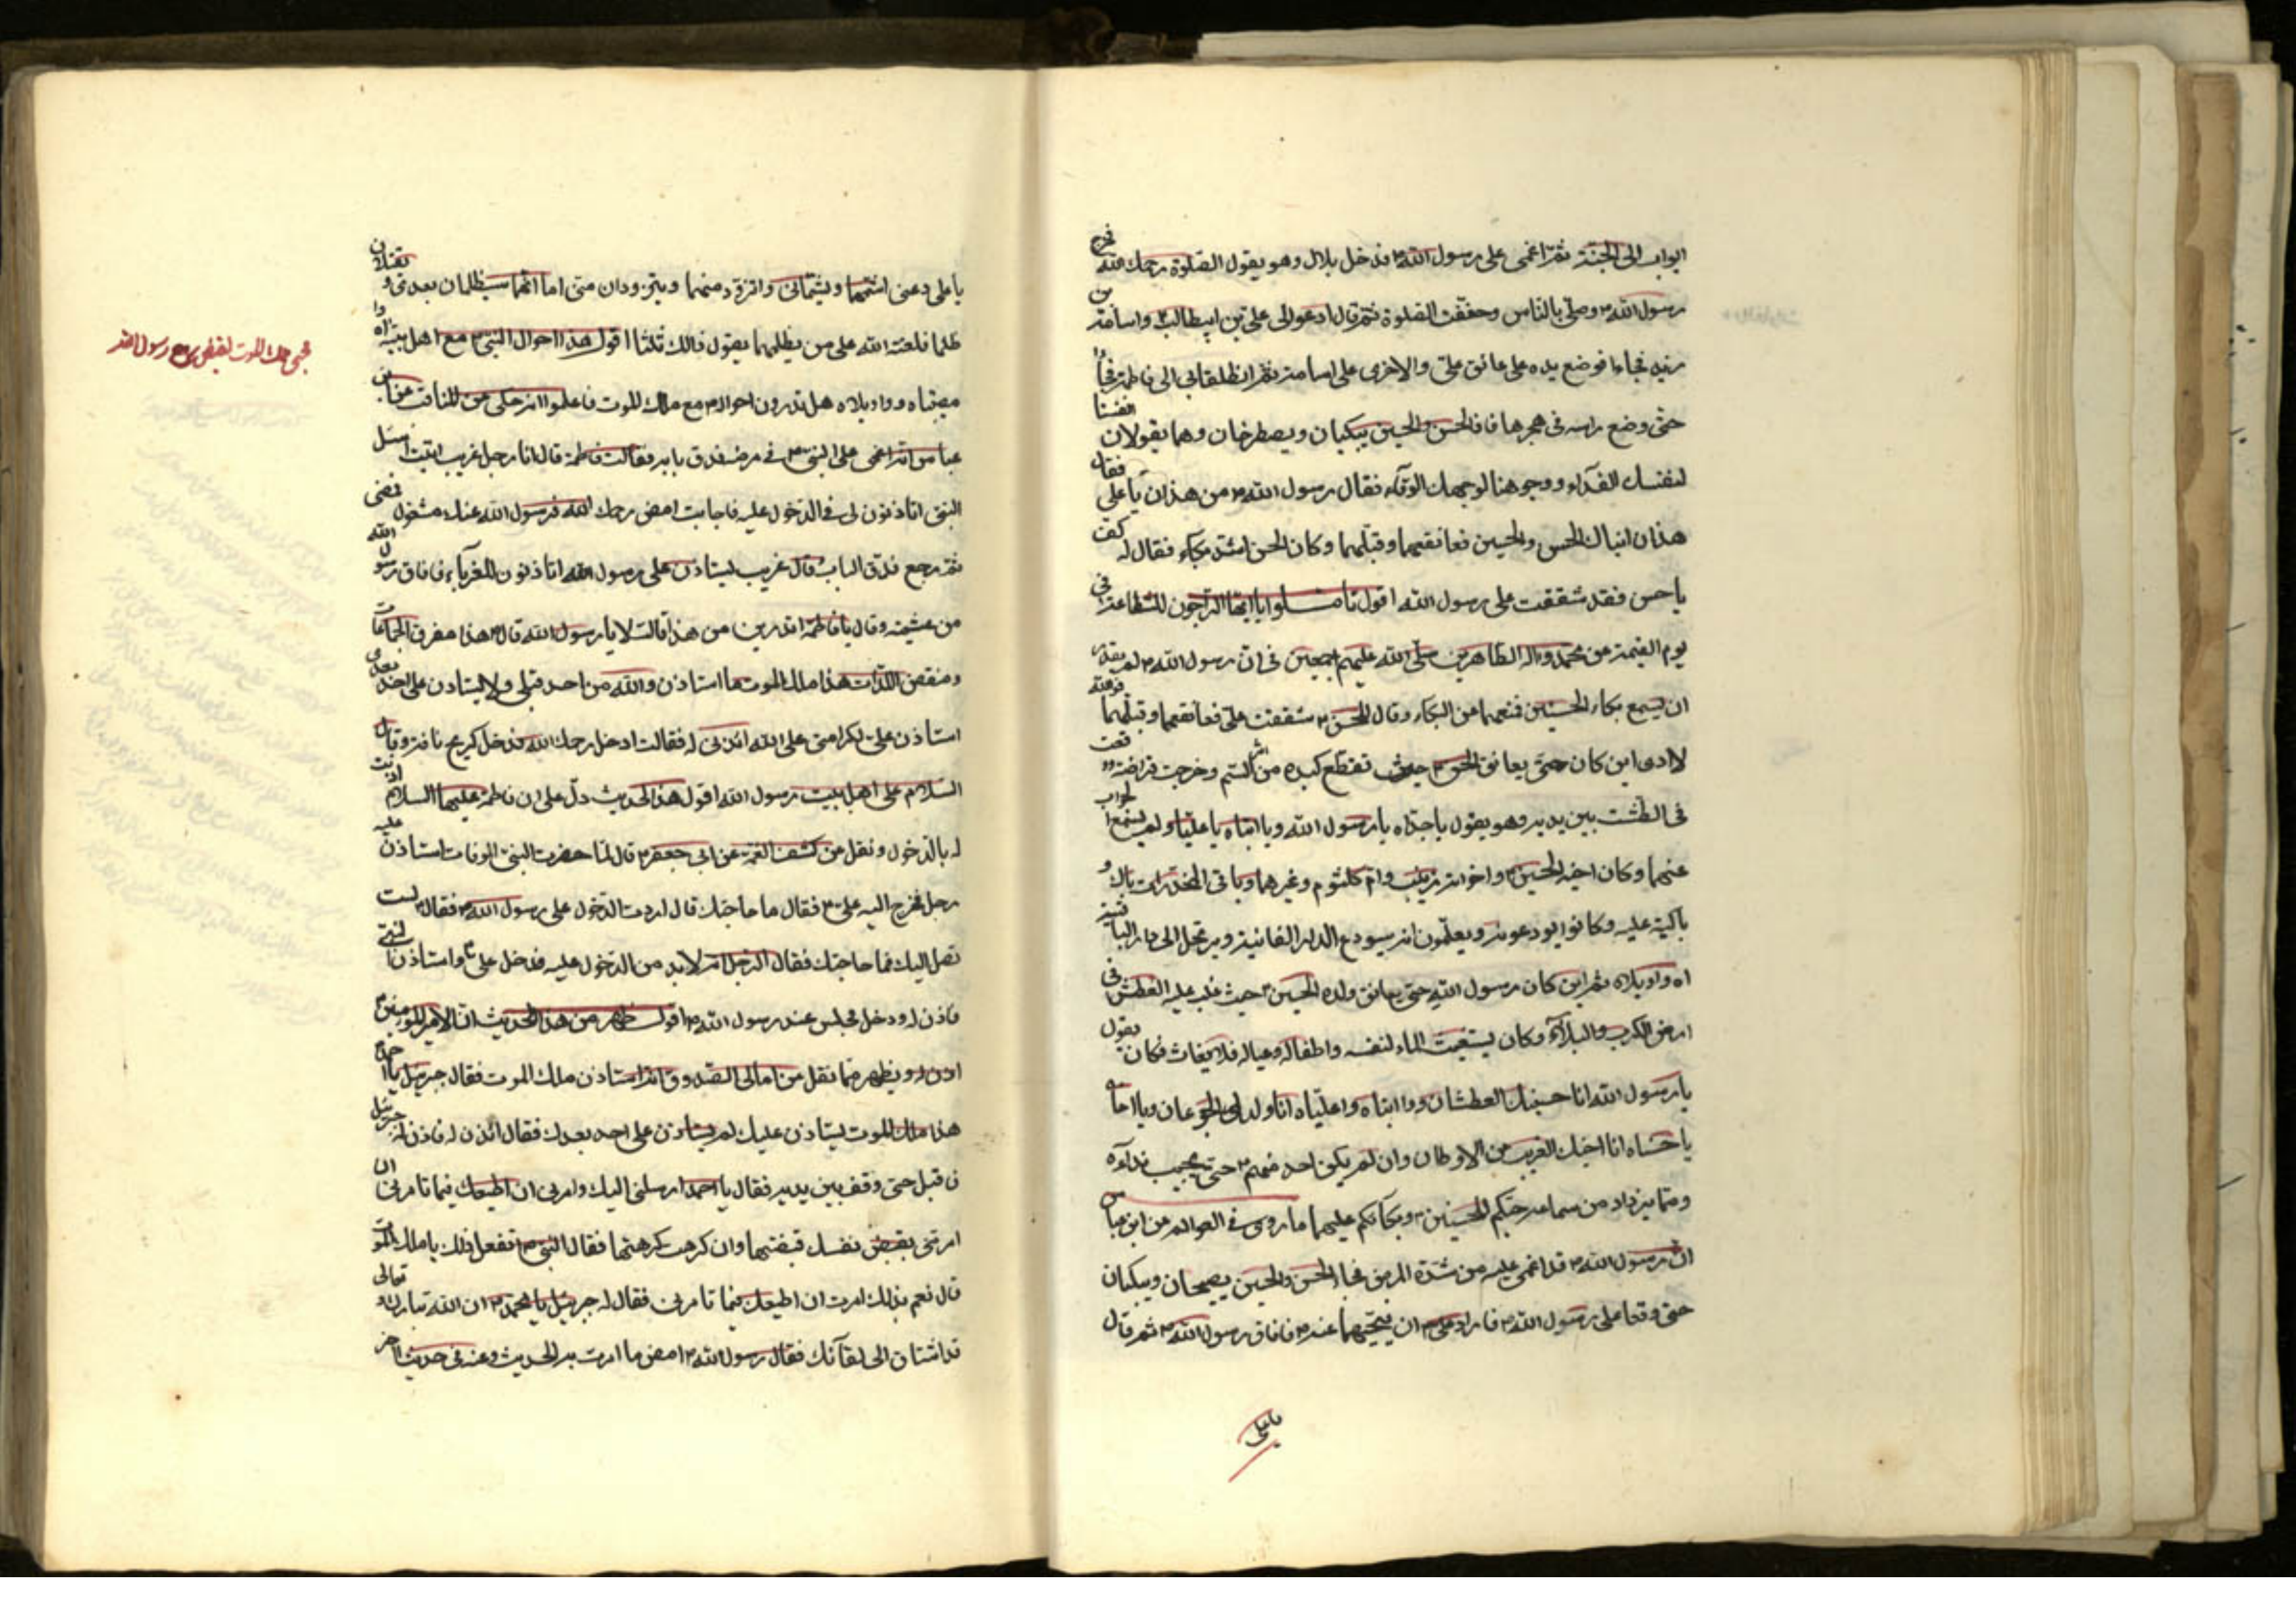 ابواب الى الجنة ثم اغمى على رسول الله ص فدخل بلال وهو يقول الصلوة رحمك الله فخرج
رسول الله ص وصلى بالناس وخفف الصلوة ثم قال ادعو الى على بن ابيطالب ع واسامة بن
زيد فجاءا فوضع يده على عاتق على والاخرى على اسامة ثم انطلقا بى الى فاطمة فجاءا
حتى وضع راسه فى حجرها فاذا الحسن والحسين يبكيان ويصطرخان وهما يقولان انفسنا
لنفسك الفداء ووجوهنا لوجهك الوقاء فقال رسول الله ص من هذان يا على فقال
هذان ابناك الحسن والحسين فعانقهما وقبلهما وكان الحسن اشد بكاء فقال له كف
يا حسن فقد شققت على رسول الله اقول تامـلوا يا ايها الراجون للشفاعة فى
يوم القيمة من محمد واله الطاهرين صلى الله عليهم اجمعين فى ان رسول الله ص لم يقدر
ان يسمع بكاء الحسنين فمنعهما عن البكاء وقال للحسن ع شققت على فعانقهما وقبلهما
لا ادرى اين كان حتى يعانق الحسن ع حيث تقطع كبده من اثر السم وخرجت قطعة قطعة
فى الطشت بين يديه وهو يقول يا جداه يا رسول الله ويا ابتاه يا علياه ولم يسمع الجواب
عنهما وكان اخيه الحسين ع واخواته زينب وام كلثوم وغيرهما وباقى المخدرات باك و
باكية عليه وكانوا يودعونه ويعلمون انه سيودع الدار الفانية ويرتحل الى دار الباقية
اه واويلاه ثم اين كان رسول الله حتى يعانق ولده الحسين ع حيث غلب عليه العطش فى
ارض الكرب والبلاء وكان يستغيث الماء لنفسه واطفاله وعياله فلا يغاث فكان يقول
يا رسول الله انا حسينك العطشان ووا ابتاه واعلياه انا ولدك الجوعان ويا اخاه
يا حسناه انا اخيك الغريب عن الاوطان وان لم يكن احد منهم ع حتى يجيب نداءه
ومما يزداد من سماعه حبكم للحسنين ع وبكائكم عليهما ما روى فى العوالم عن ابن عباس
ان رسول الله ص قد اغمى عليه من شدة المرض فجاء الحسن والحسين يصيحان ويبكيان
حتى وقعا على رسول الله ص فاراد على ع ان ينحيهما عنه ص فافاق رسول الله ص ثم قال
يا على
يا على دعنى اشمهما ويشمانى واتزود منهما ويتزودان منى اما انهما سيظلمان بعدى ويقتلان
ظلما فلعنة الله على من يظلمهما يقول ذلك ثلثا اقول هذا احوال النبى ص مع اهل بيته واه
مصيبتاه وواويلاه هل تدرون احواله ص مع ملك الموت فاعلموا انه حكى عن المناقب عن ابن
عباس انه اغمى على النبى ص فى مرضه فدق بابه فقالت فاطمة قال انا رجل غريب اتيت اسئل
النبى اتاذنون لى فى الدخول عليه فاجابت امض رحمك الله فرسول الله عنك مشغول فمضى
ثم رجع فدق الباب قال غريب يستاذن على رسول الله اتاذنون للغرباء فافاق رسول الله
من غشيته وقال يا فاطمة اتدرين من هذا قالت لا يا رسول الله قال ص هذا مفرق الجماعات
ومنغص اللذات هذا ملك الموت ما استاذن والله من احد قبلى ولا يستاذن على احد بعدى
استاذن على لكرامتى على الله ائذنى له فقالت ادخل رحمك الله فدخل كريح نافة وقال
السلام على اهل بيت رسول الله اقول هذا الحديث دل على ان فاطمة عليها السلام اذنت
له بالدخول ونقل عن كشف الغمة عن ابى جعفر ع قال لما حضرت النبى الوفات استاذن عليه
رجل فخرج اليه على ع فقال ما حاجتك قال اردت الدخول على رسول الله ص فقال ع لست
تصل اليك فما حاجتك فقال الرجل انه لابد من الدخول عليه فدخل على ع واستاذن النبى
فاذن له ودخل فجلس عند رسول الله ص اقول ظهر من هذا الحديث ان امير المؤمنين ع
اذن له ويظهر مما نقل من امالى الصدوق انه استاذن ملك الموت فقال جبرئيل يا احمد
هذا ملك الموت يستاذن عليك لم يستاذن على احد بعدك فقال ائذن له فاذن له جبرئيل
فاقبل حتى وقف بين يديه فقال يا احمد ارسلنى اليك وامرنى ان اطيعك فيما تامرنى ان
امرتنى بقبض نفسك قبضتها وان كرهت كرهتها فقال النبى ص اتفعل ذلك يا ملك الموت
قال نعم بذلك امرت ان اطيعك فيما تامرنى فقال له جبرئيل يا محمد ص ان الله تبارك وتعالى
قد اشتاق الى لقائك فقال رسول الله ص امض ما امرت به الحديث وعنه فى حديث اخر
مجئ ملك الموت لقبض روح رسول الله